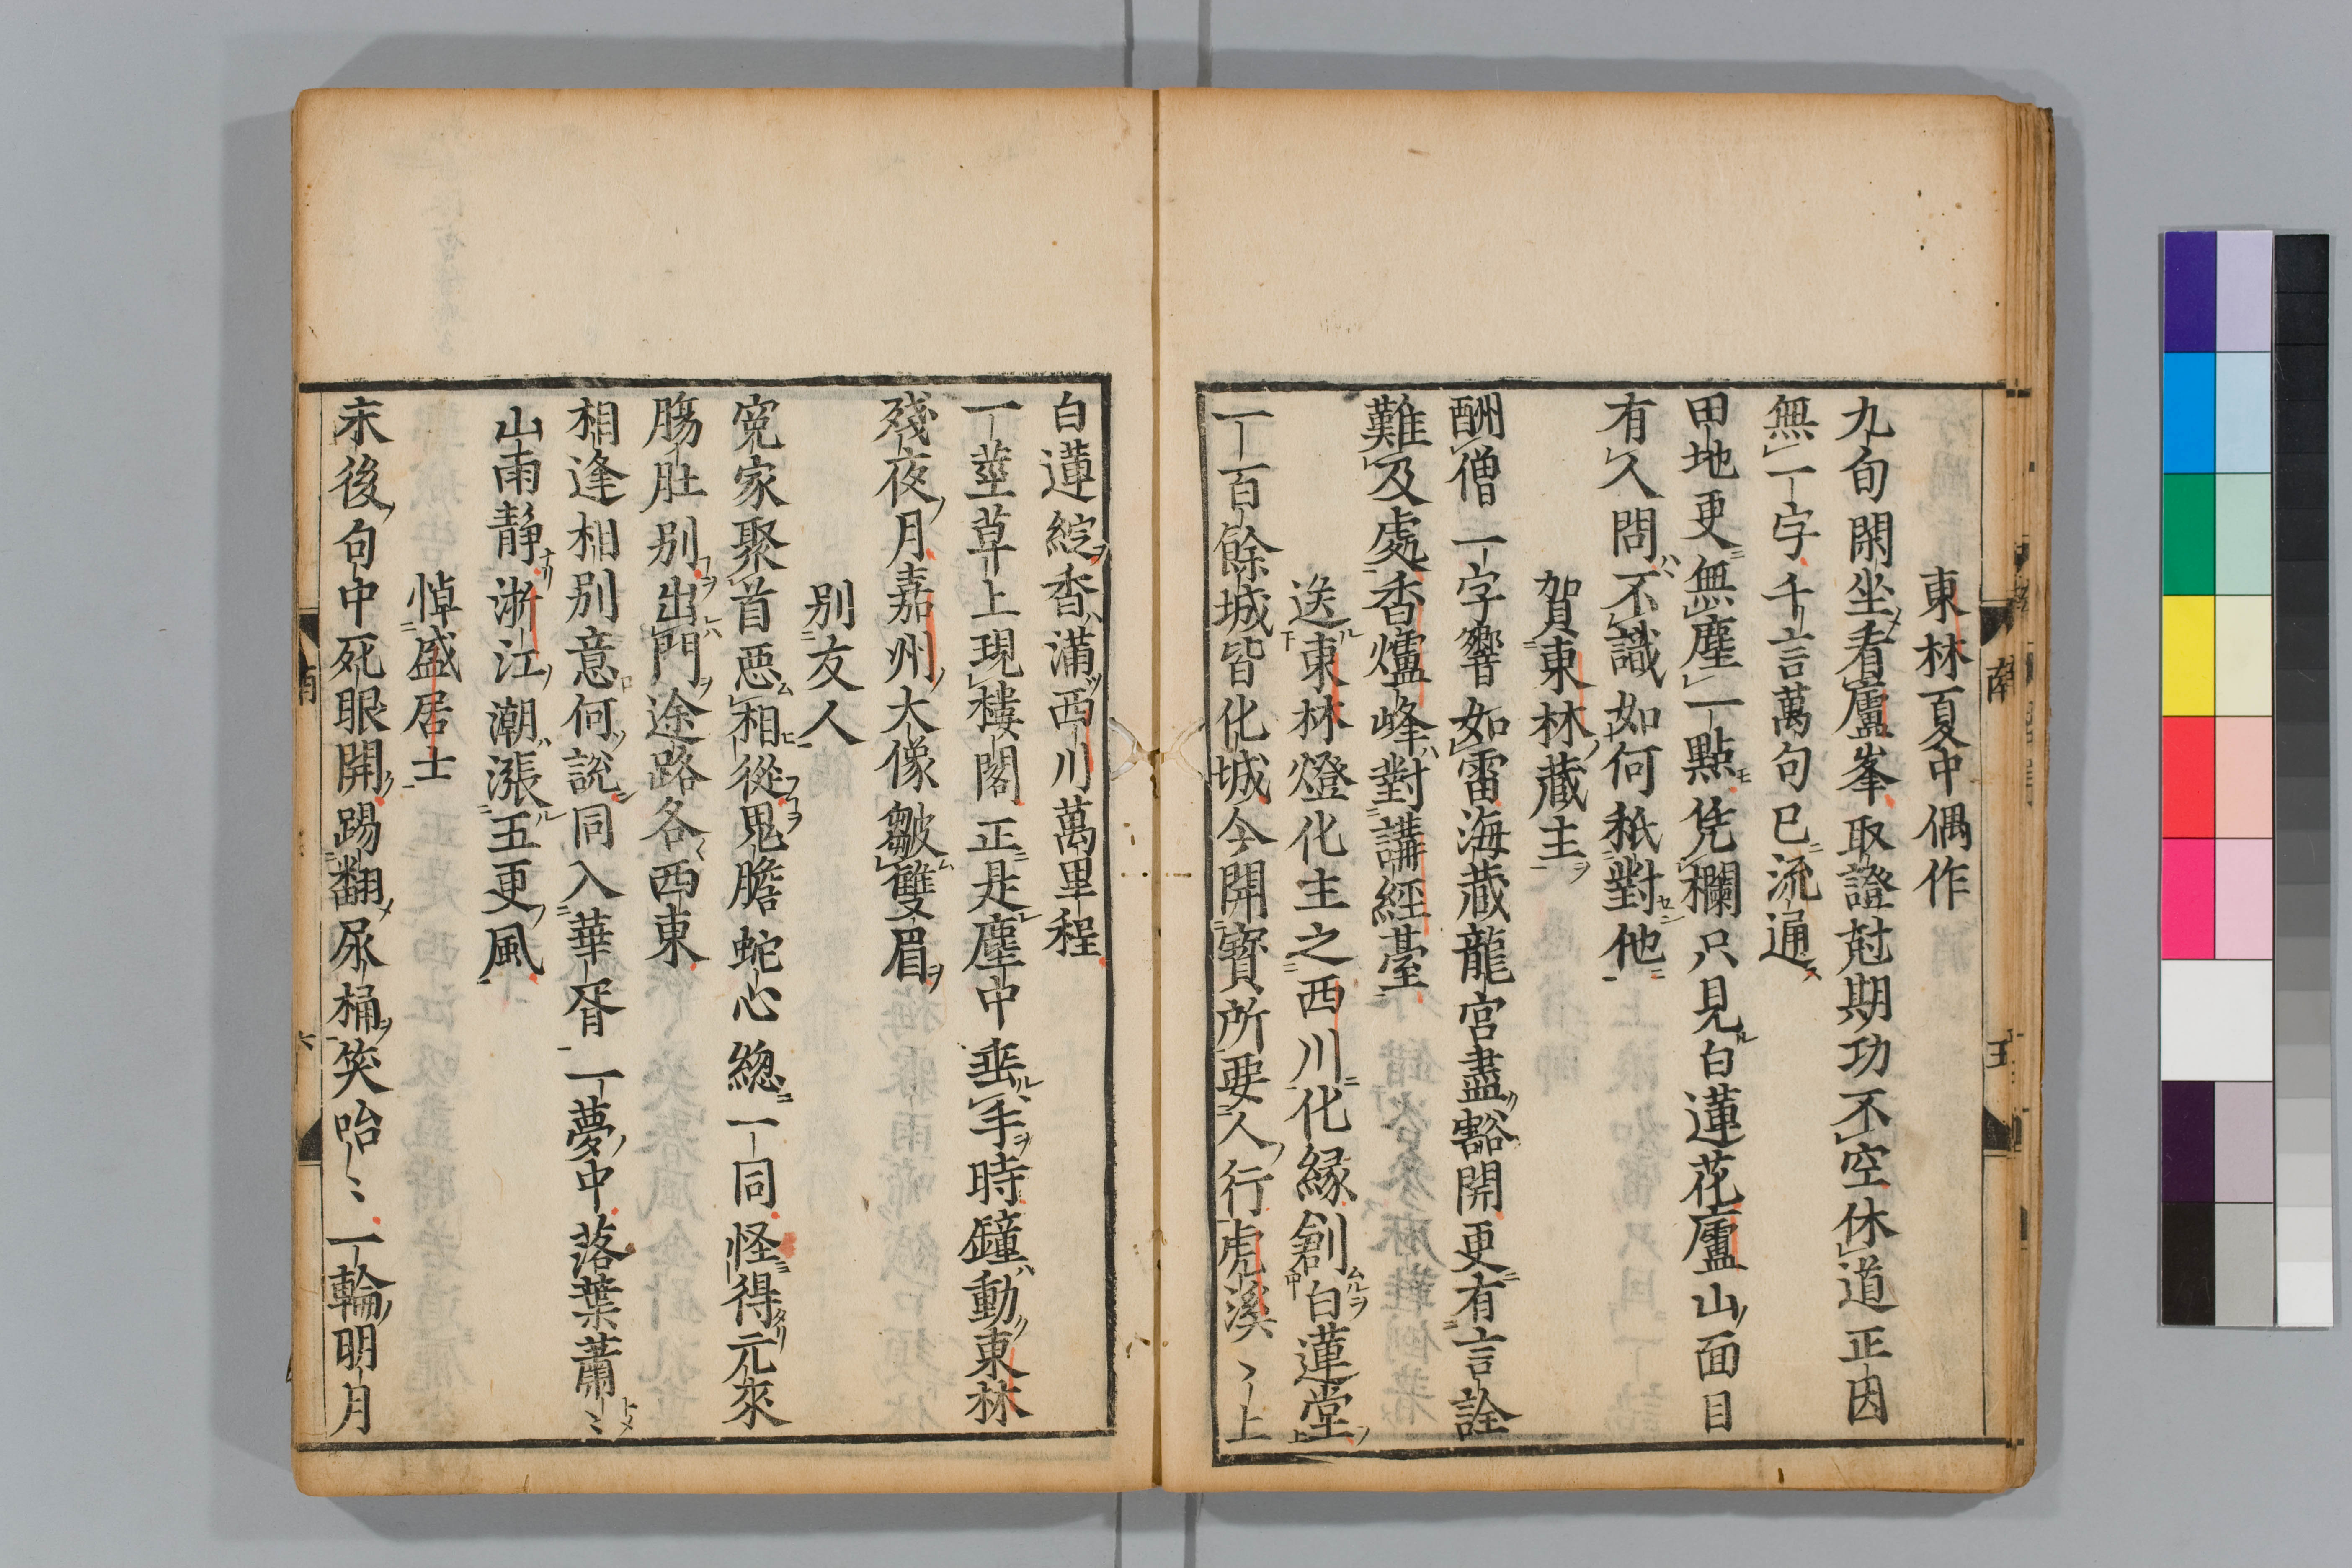 東林夏中偶作
九旬閑坐看廬峯取證尅期功不空休道正因
無一字千言萬句已流通
田地更無塵一點凭欄只見白蓮花廬山面目
有人問不識如何秖對他
賀東林藏主
酬僧一字響如雷海藏龍宮盡豁開更有言詮
難及處香爐峰對講經臺
送東林燈化主之西川化緣創白蓮堂
一百餘城皆化城今開寳所要人行虎溪〻上
白蓮綻香滿西川萬里程
一莖草上現樓閣正是塵中垂手時鐘動東林
殘夜月嘉州大像皺雙眉
别友人
寃家聚首惡相從鬼膽蛇心緫一同怪得元來
膓肚别出門途路各西東
相逢相别意何說同入華胥一夢中落葉蕭〻
山雨靜淅江潮漲五更風
悼盛居士
末後句中死眼開踢翻尿桶笑咍〻一輪明月